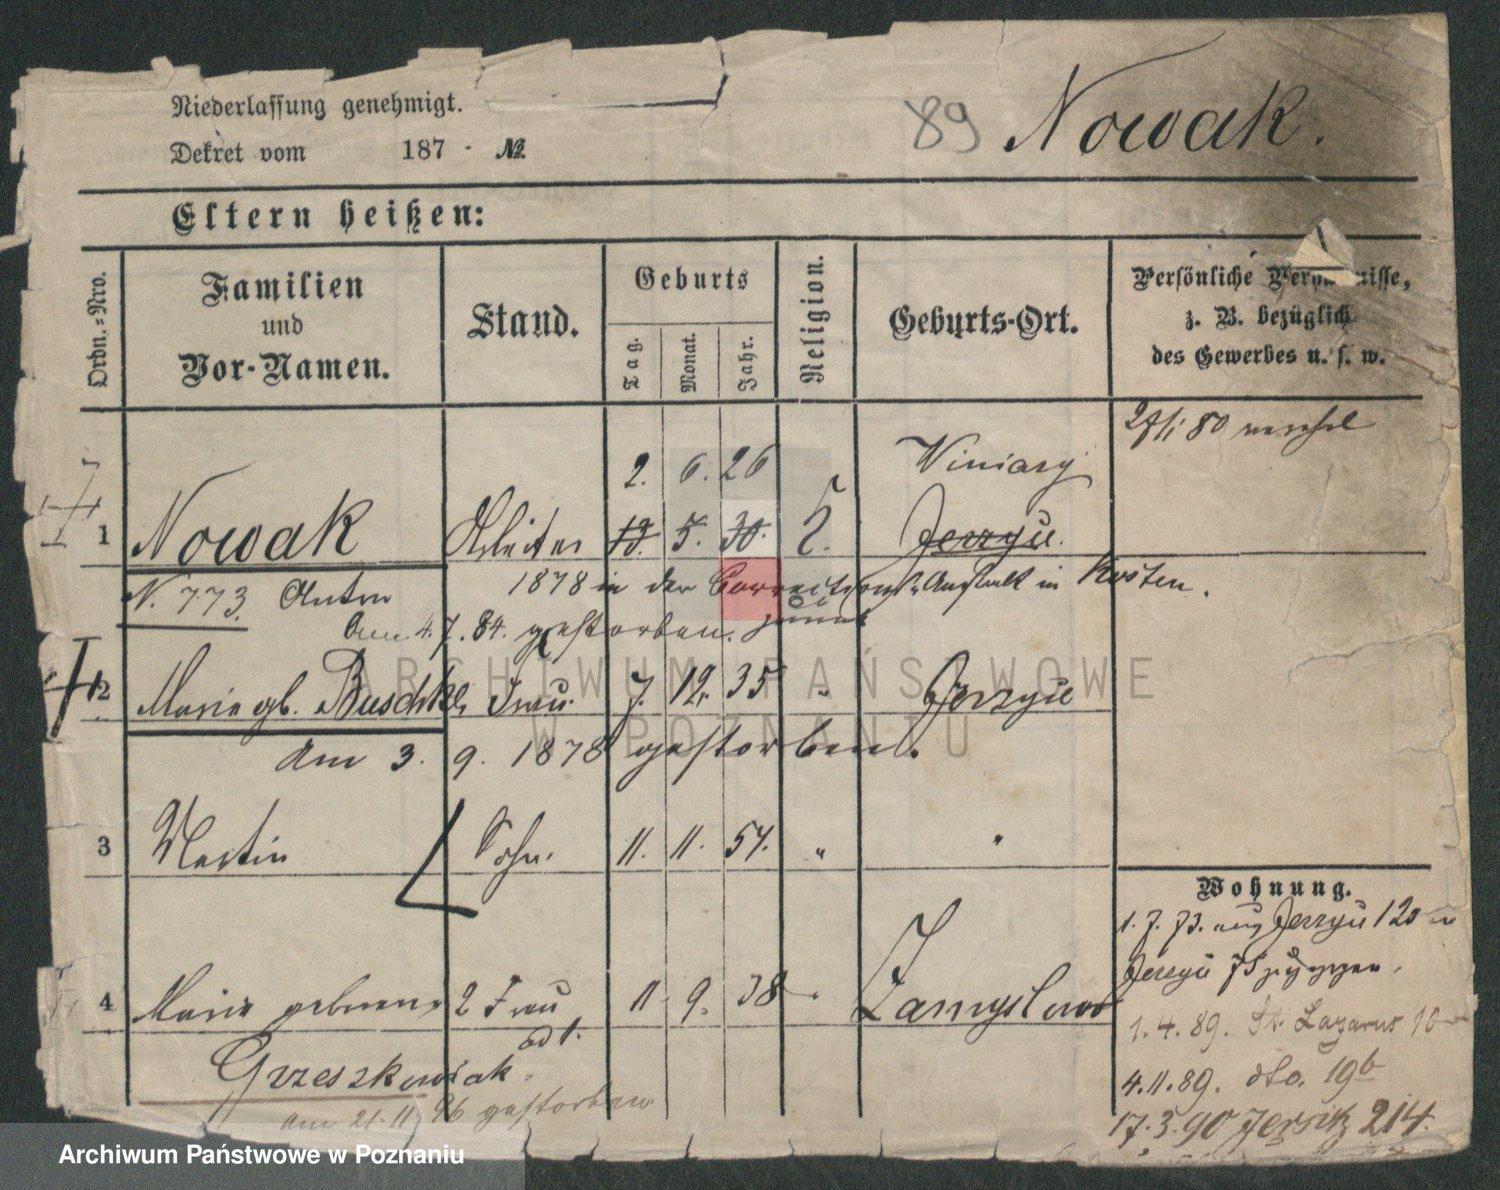 Niederlassung genehmigt.
Dekret vom 187 No
89 Nowak.
Eltern heißen:
Ordn.=Nro.
Familien
und
Vor-Namen.
Stand.
Geburts
Tag.
Monat.
Jahr.
Religion.
Geburts-Ort.
Persönliche Verhältnisse,
z. B. bezüglich
des Gewerbes u. s. w.
80
2. 6. 26 Viniary
1 Nowak Arbeiter 13. 5. 30. Jerzyce.
N. 773 Anton 1878 in der Corrections-Anstalt in Kosten.
Am 4. 7. 84. gestorben.
2 Marie gb. Buschke Frau. 7. 12. 35 " Jerzyce
am 3. 9. 1878 gestorben.
3 Martin Sohn. 11. 11. 57. " "
4 Marie geborene 2 Frau 11. 9. 38 " Zamyslowo
ad 1.
Grzeszkowiak
am 21.11 96 gestorben
Wohnung.
1. 7. 73. aus Jerzyce 120
Jerzyce
1. 4. 89. St. Lazarus 10
4. 11. 89. dto. 19b
17. 3. 90 Jersitz 214.
ARCHIWUM PAŃSTWOWE
W POZNANIU
Archiwum Państwowe w Poznaniu